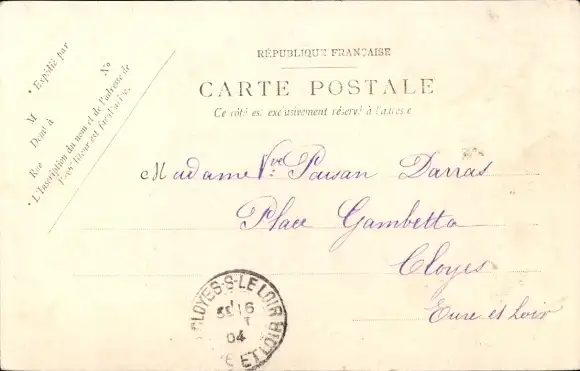 * Expédié par
M
Demt à
Rue
No
* L'Inscription du nom et de l'adresse de
l'expéditeur est facultative.
RÉPUBLIQUE FRANÇAISE
CARTE POSTALE
Ce côté est exclusivement réservé à l'adresse
Madame Vve Darras
Place Gambetta
Cloyes
Eure et Loir
CLOYES-S-LE LOIR
16
04
ET LOIR